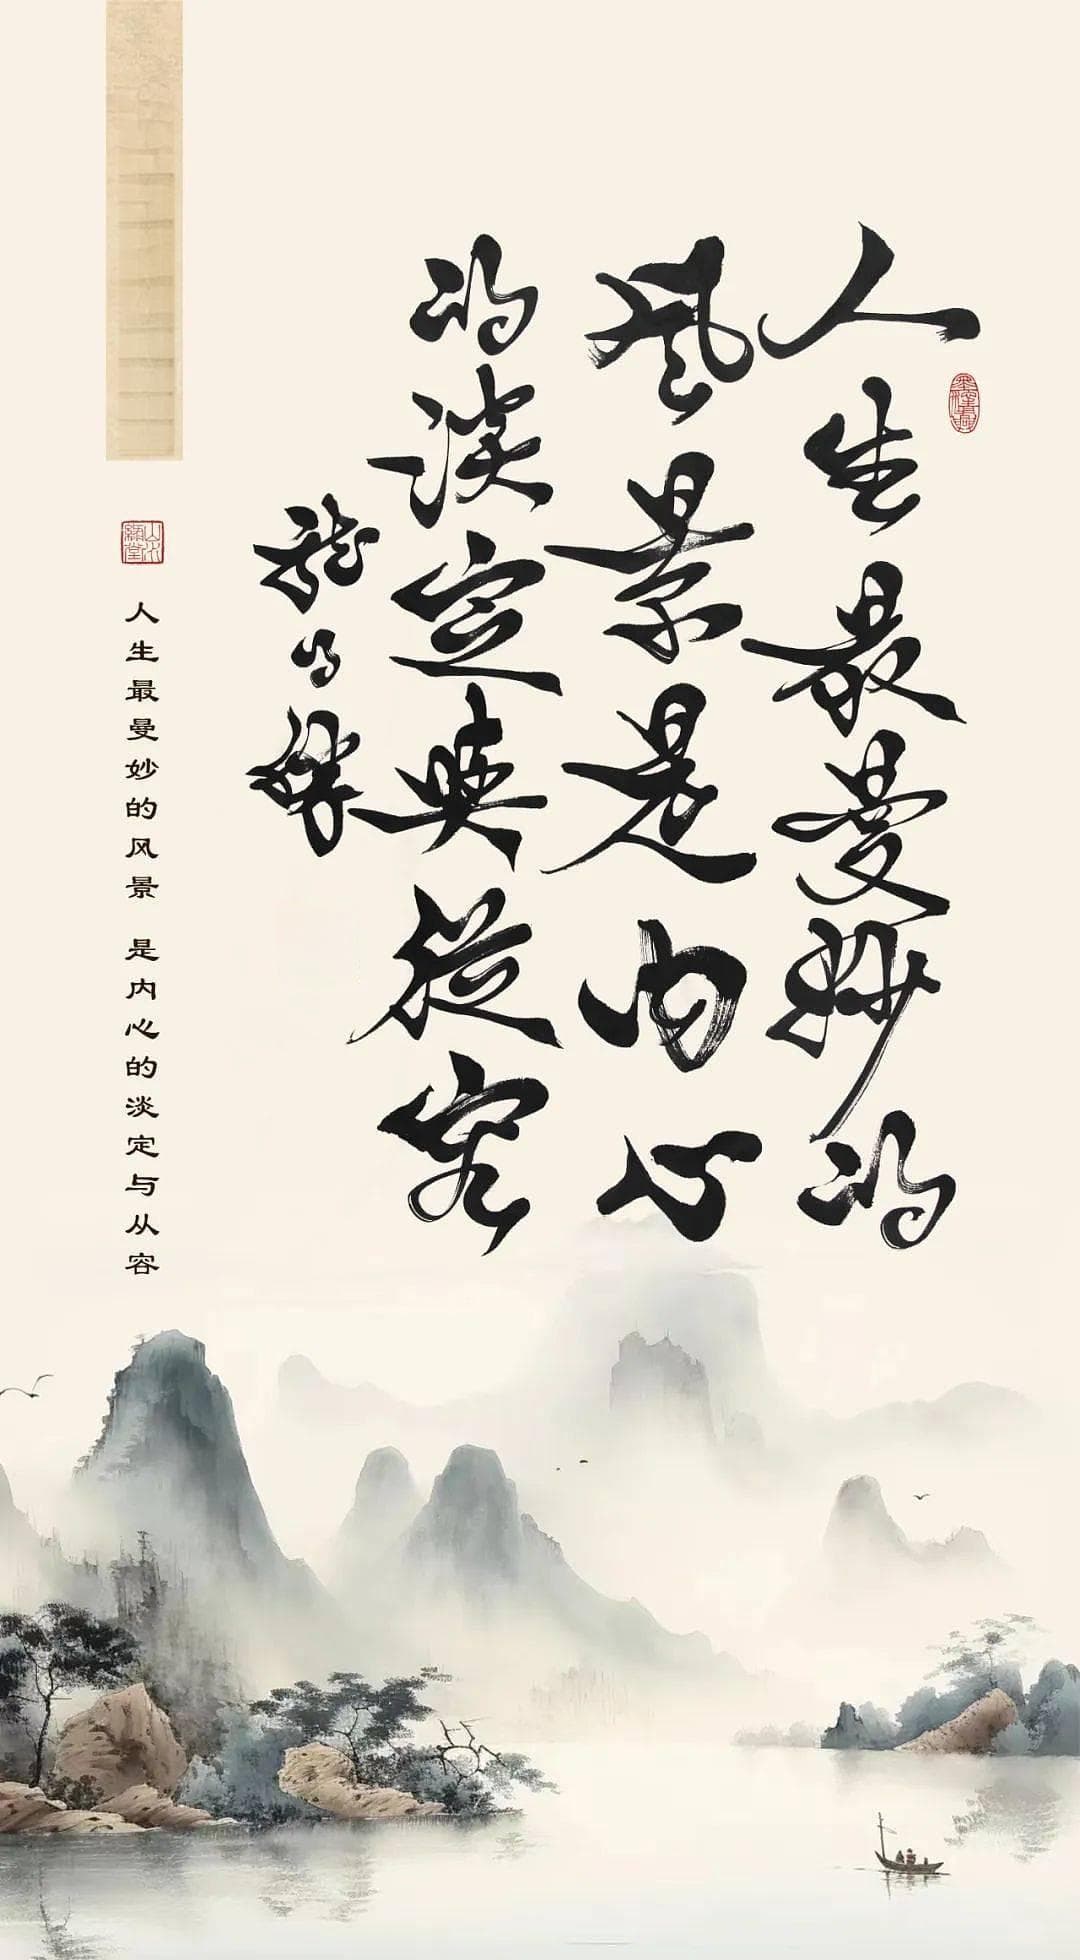 人生最曼妙的
风景是内心
的淡定與從容
人生最曼妙的风景 是内心的淡定与从容